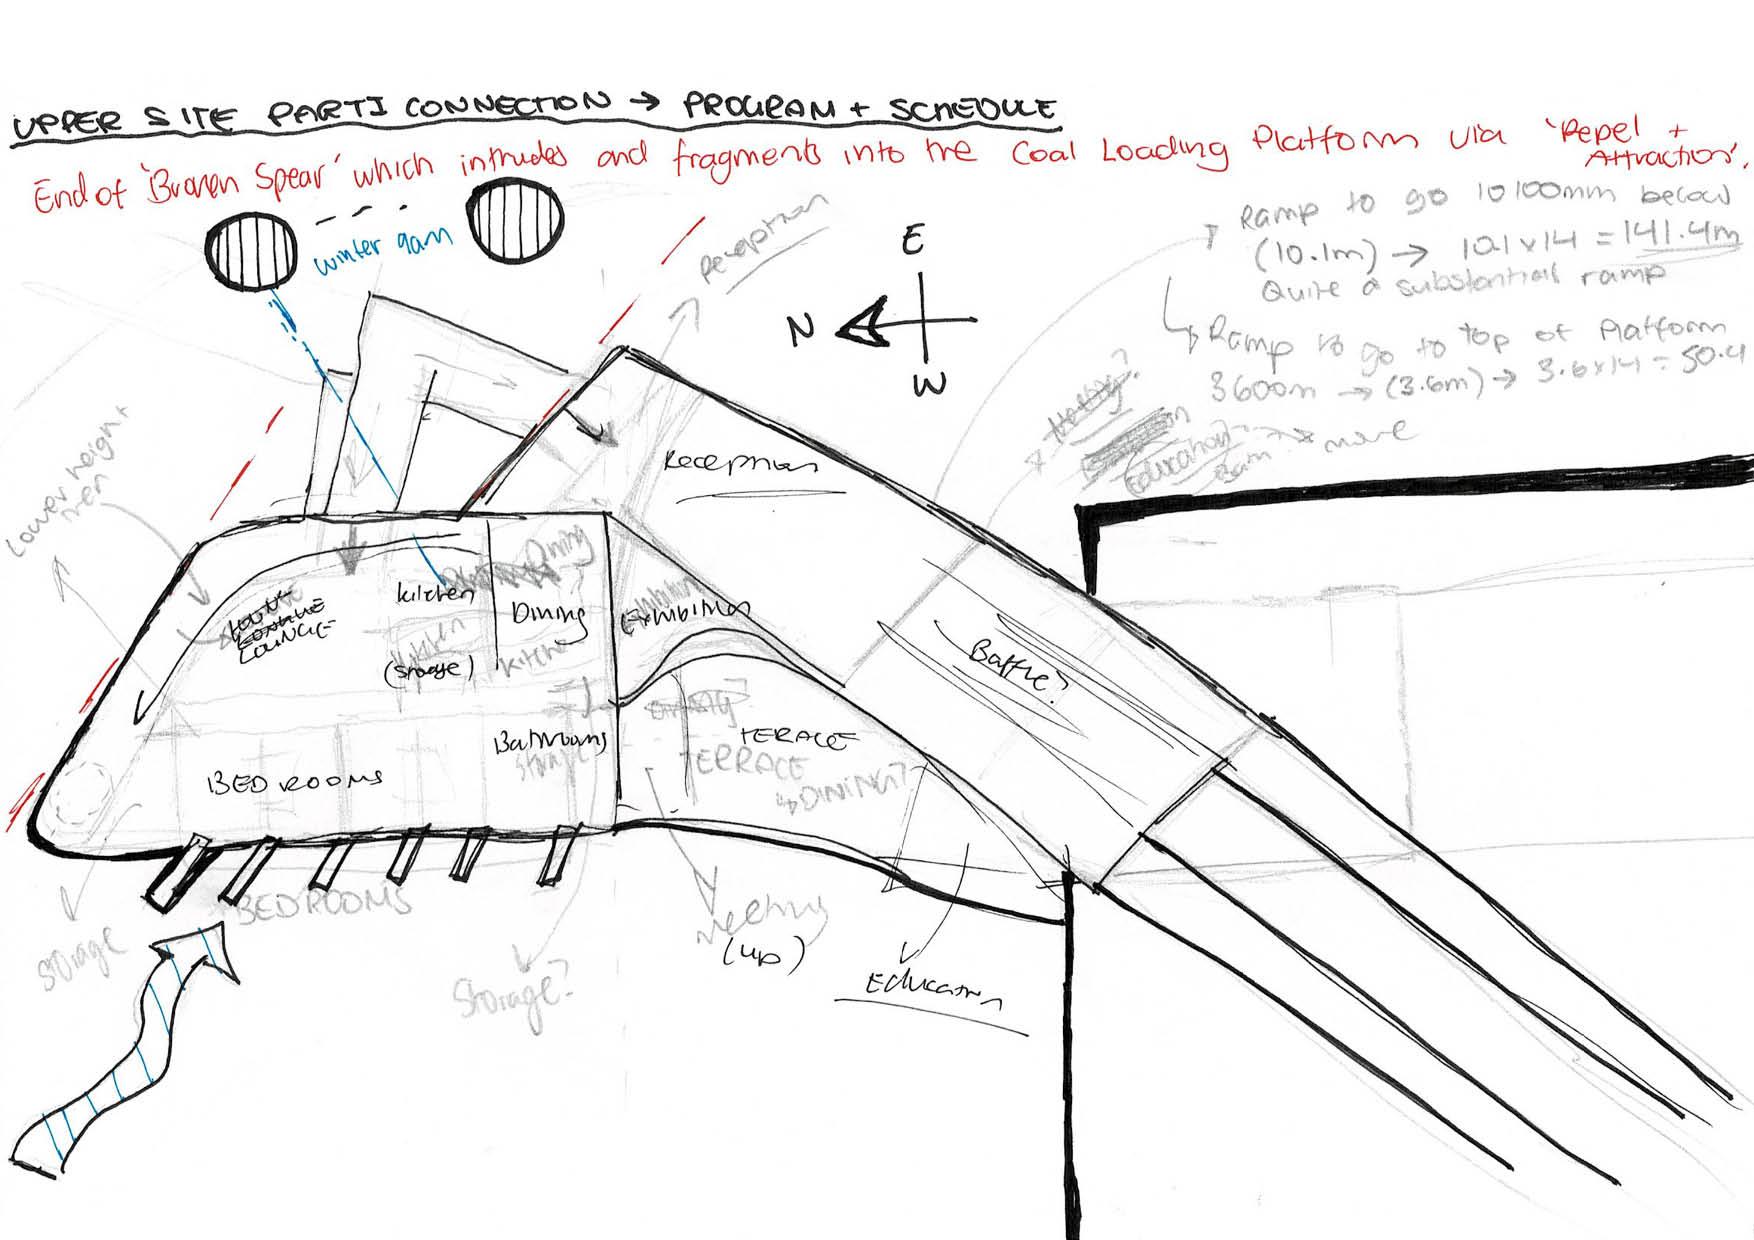 UPPER SITE PARTI CONNECTION → PROGRAM + SCHEDULE
End of 'Broken Spear' which intrudes and fragments into the Coal Loading Platform via 'Repel +
Attraction'.
winter
Reception
E
N
W
Ramp to go 10100mm below
(10.1m) → 10.1 x 14 = 141.4m
Quite a substantial ramp
Ramp to go to top of Platform
3600m → (3.6m) → 3.6 x 14 = 50.4
Education
→ move
Lower height
Reception
Kitchen
Dining
Exhibition
LOUNGE
Kitchen
(storage)
Kitchen
Baffle?
Bathrooms
Storage
TERRACE
TERRACE
DINING?
BEDROOMS
BEDROOMS
Storage
Storage?
Meetings
(up)
Education